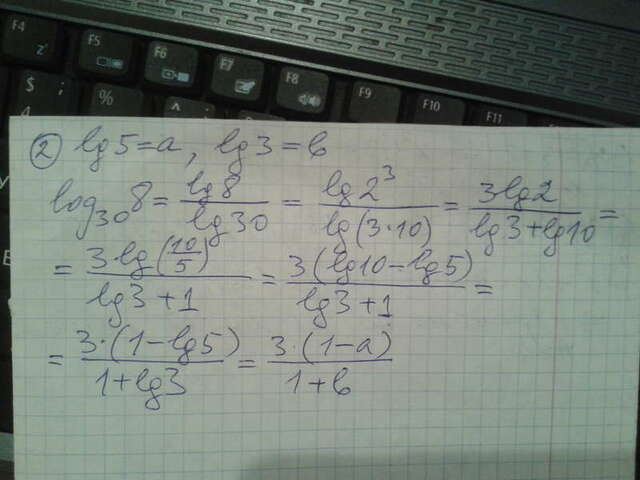 F4 F5 F6 F7 F8 F9 F10 F11
$ ; 4 % ^
② lg5=a, lg3=b
log₃₀8 = lg8/lg30 = lg2³/lg(3·10) = 3lg2/(lg3+lg10) =
= 3lg(10/5)/(lg3+1) = 3(lg10-lg5)/(lg3+1) =
= 3·(1-lg5)/(1+lg3) = 3·(1-a)/(1+b)